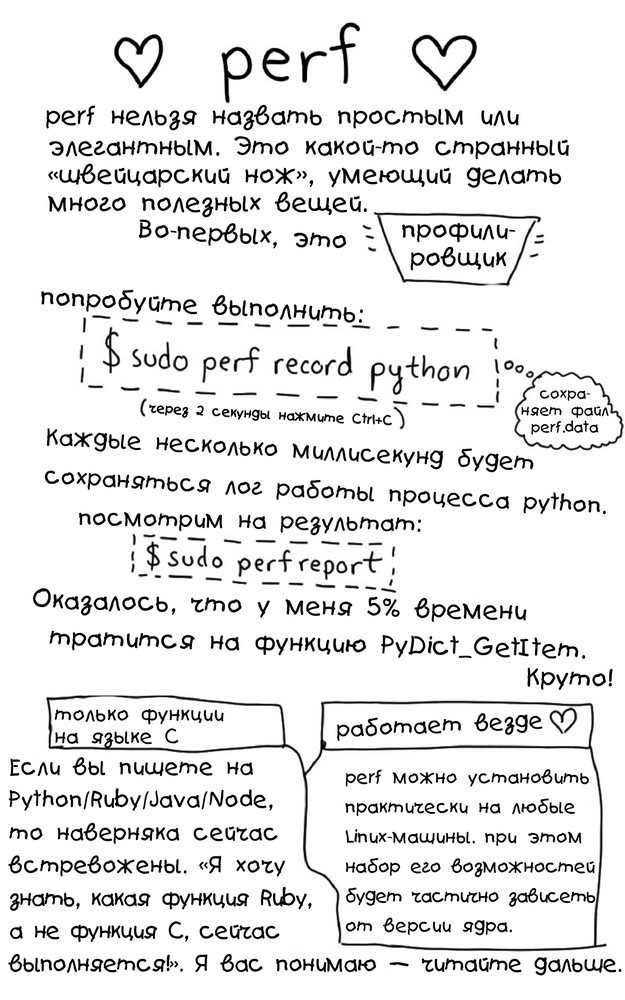 perf
perf нельзя назвать простым или
элегантным. Это какой-то странный
«швейцарский нож», умеющий делать
много полезных вещей.
Во-первых, это
профили-
ровщик
попробуйте выполнить:
$ sudo perf record python
(через 2 секунды нажмите Ctrl+C)
сохра-
няет файл
perf.data
Каждые несколько миллисекунд будет
сохраняться лог работы процесса python.
посмотрим на результат:
$ sudo perf report
Оказалось, что у меня 5% времени
тратится на функцию PyDict_GetItem.
Круто!
только функции
на языке C
Если вы пишете на
Python/Ruby/Java/Node,
то наверняка сейчас
встревожены. «Я хочу
знать, какая функция Ruby,
а не функция C, сейчас
выполняется!». Я вас понимаю — читайте дальше.
работает везде
perf можно установить
практически на любые
Linux-машины. при этом
набор его возможностей
будет частично зависеть
от версии ядра.